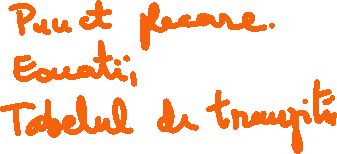 Punct plecare.
Ecuatii,
Tabelul de tranzitii